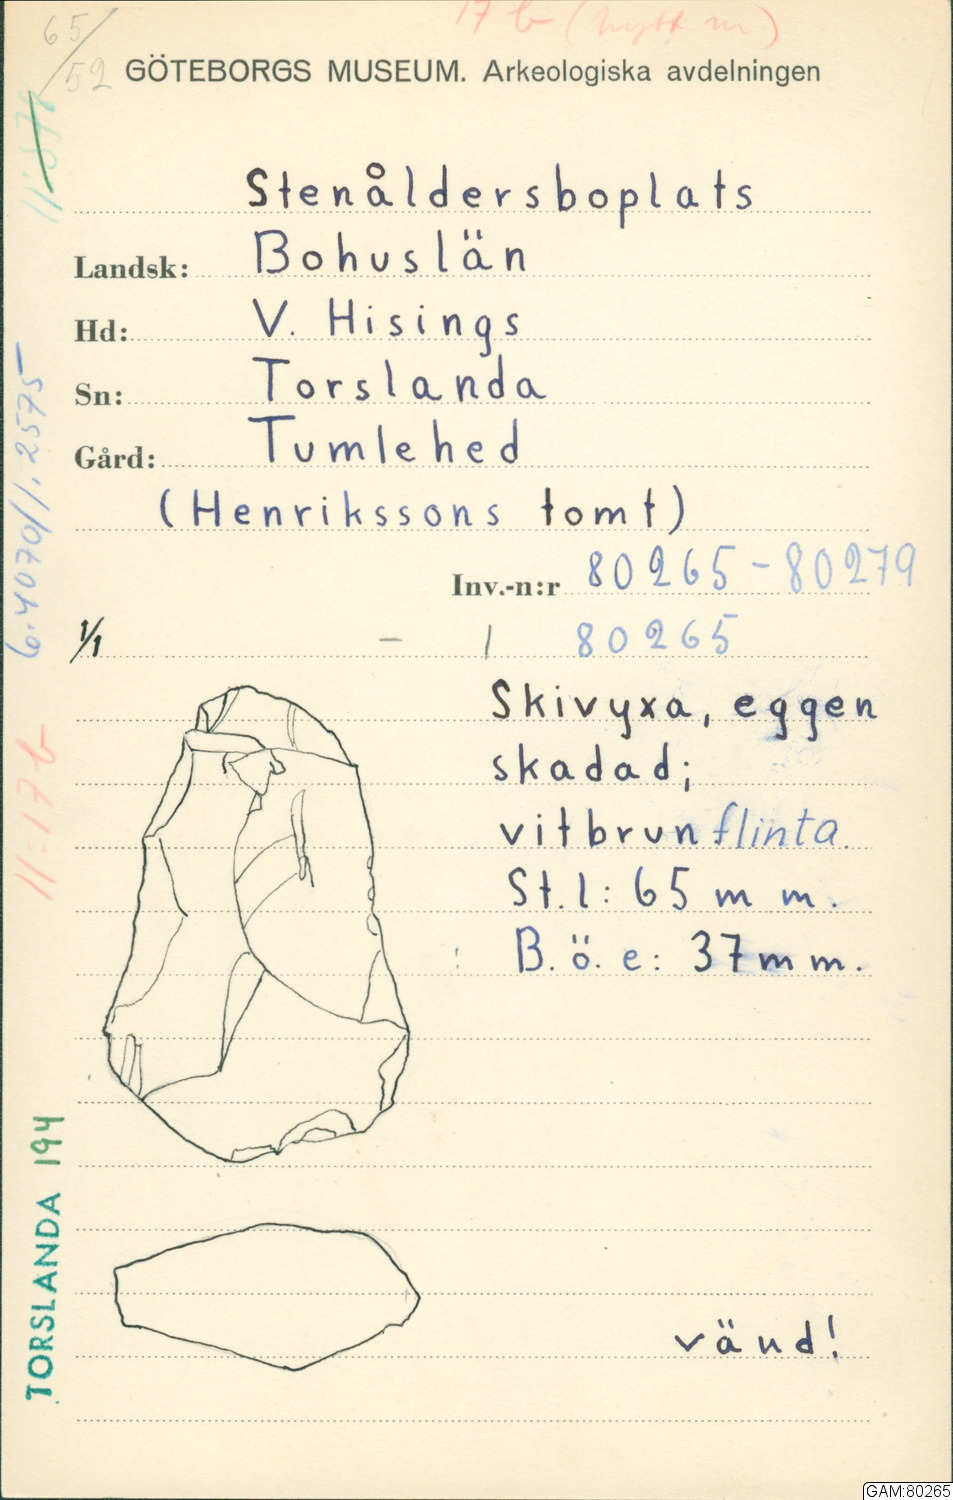 65/52
17 b (nytt nr)
GÖTEBORGS MUSEUM. Arkeologiska avdelningen
Stenåldersboplats
Landsk: Bohuslän
Hd: V. Hisings
Sn: Torslanda
Gård: Tumlehed
(Henrikssons tomt)
Inv.-n:r 80265-80279
1/1 - 1 80265
Skivyxa, eggen
skadad;
vitbrun flinta.
St.l: 65 mm.
B.ö.e: 37mm.
vänd!
6.4070/1.2575
11:17b
TORSLANDA 194
GAM:80265